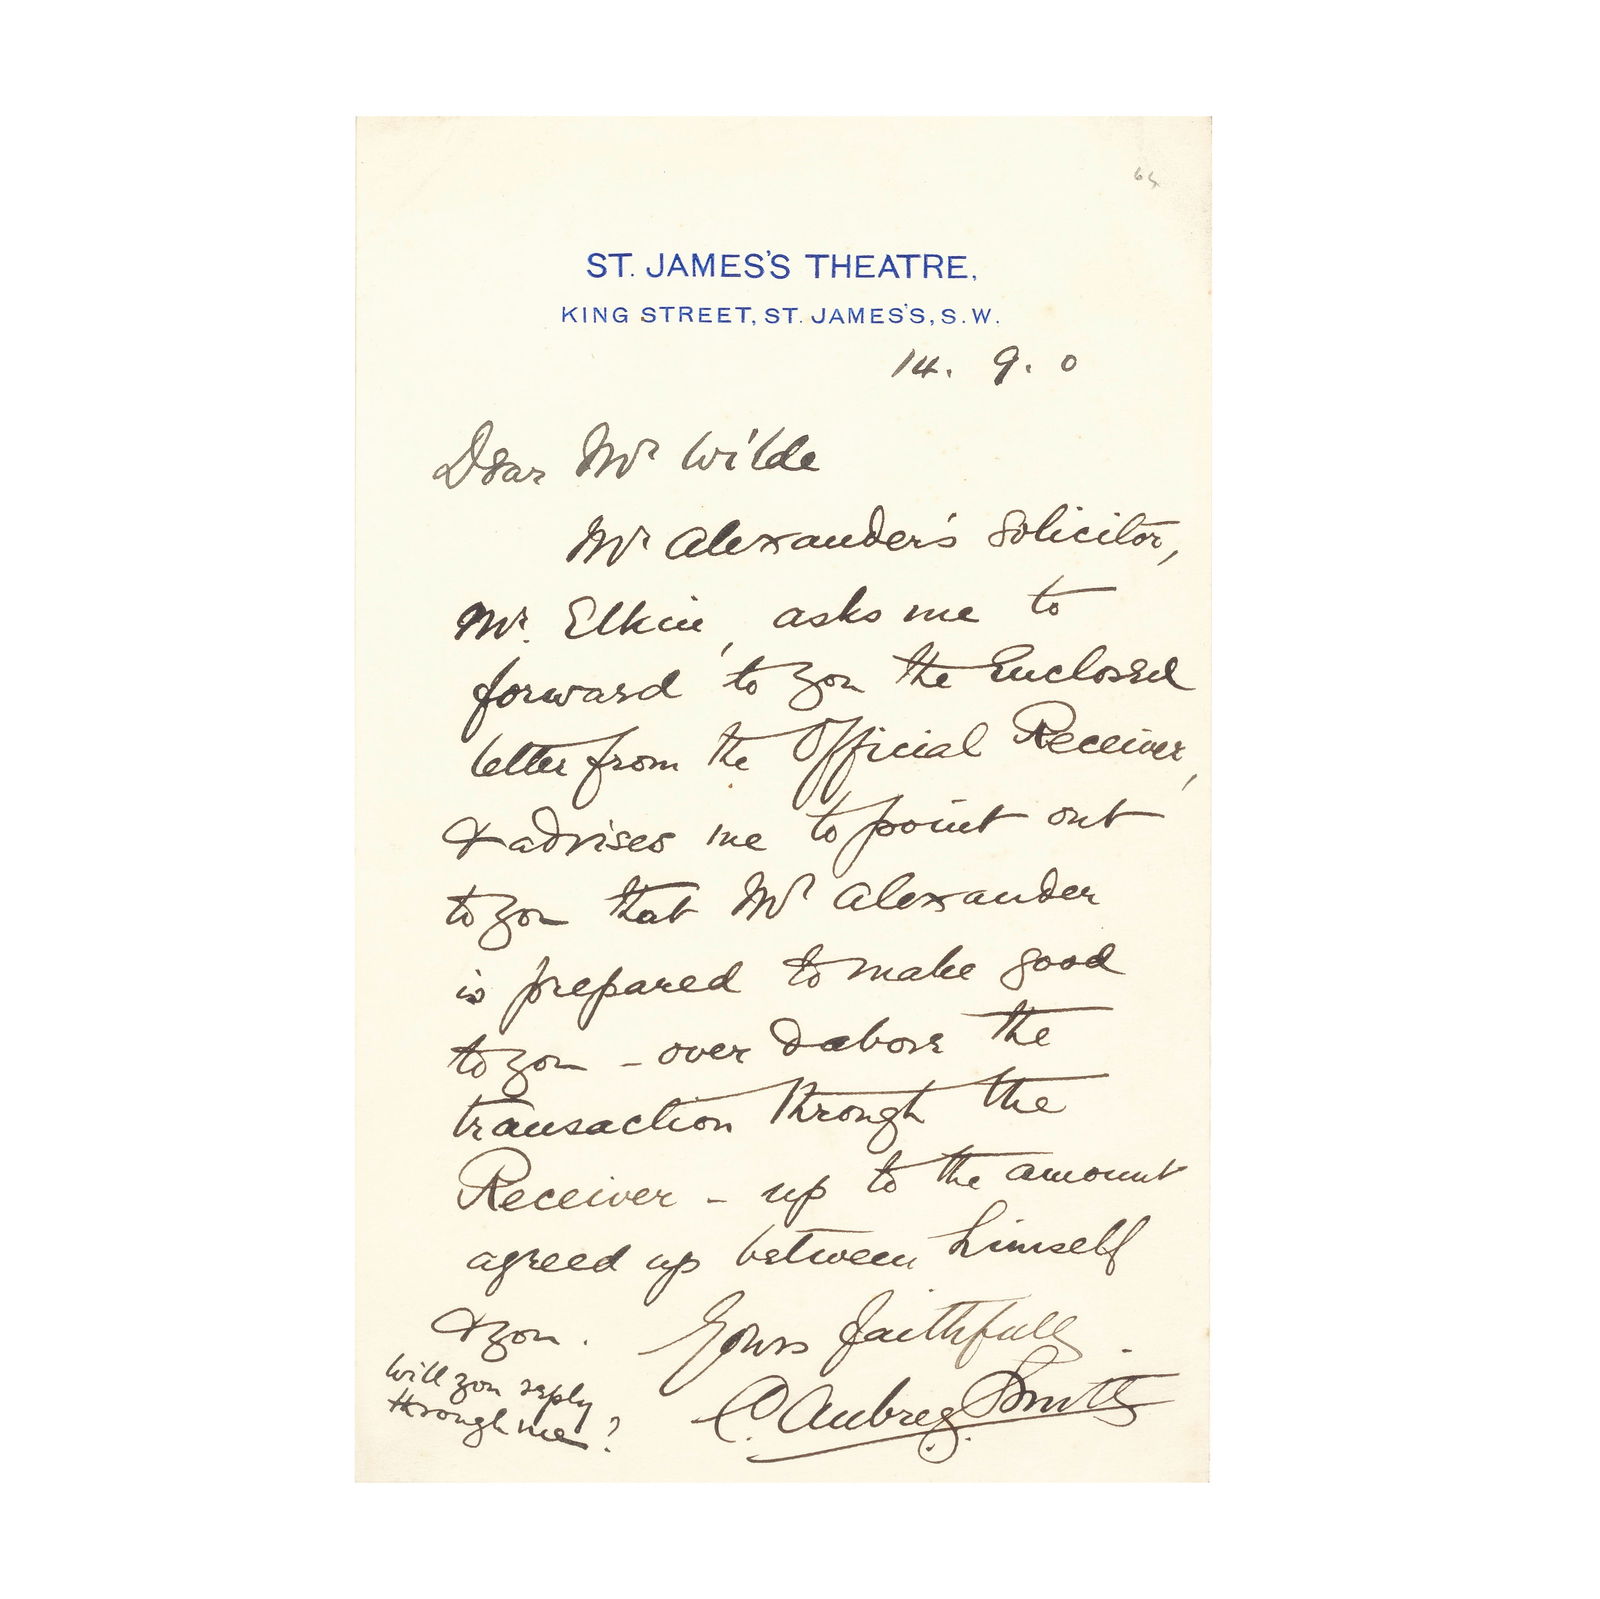 64
ST. JAMES'S THEATRE,
KING STREET, ST. JAMES'S, S.W.
14. 9. 0
Dear Mr Wilde
Mr Alexander's Solicitor,
Mr. Elkin, asks me to
forward to you the Enclosed
letter from the Official Receiver,
& advises me to point out
to you that Mr Alexander
is prepared to make good
to you - over & above the
transaction through the
Receiver - up to the amount
agreed up between himself
& you. Yours faithfully
C. Aubrey Smith
Will you reply
through me?